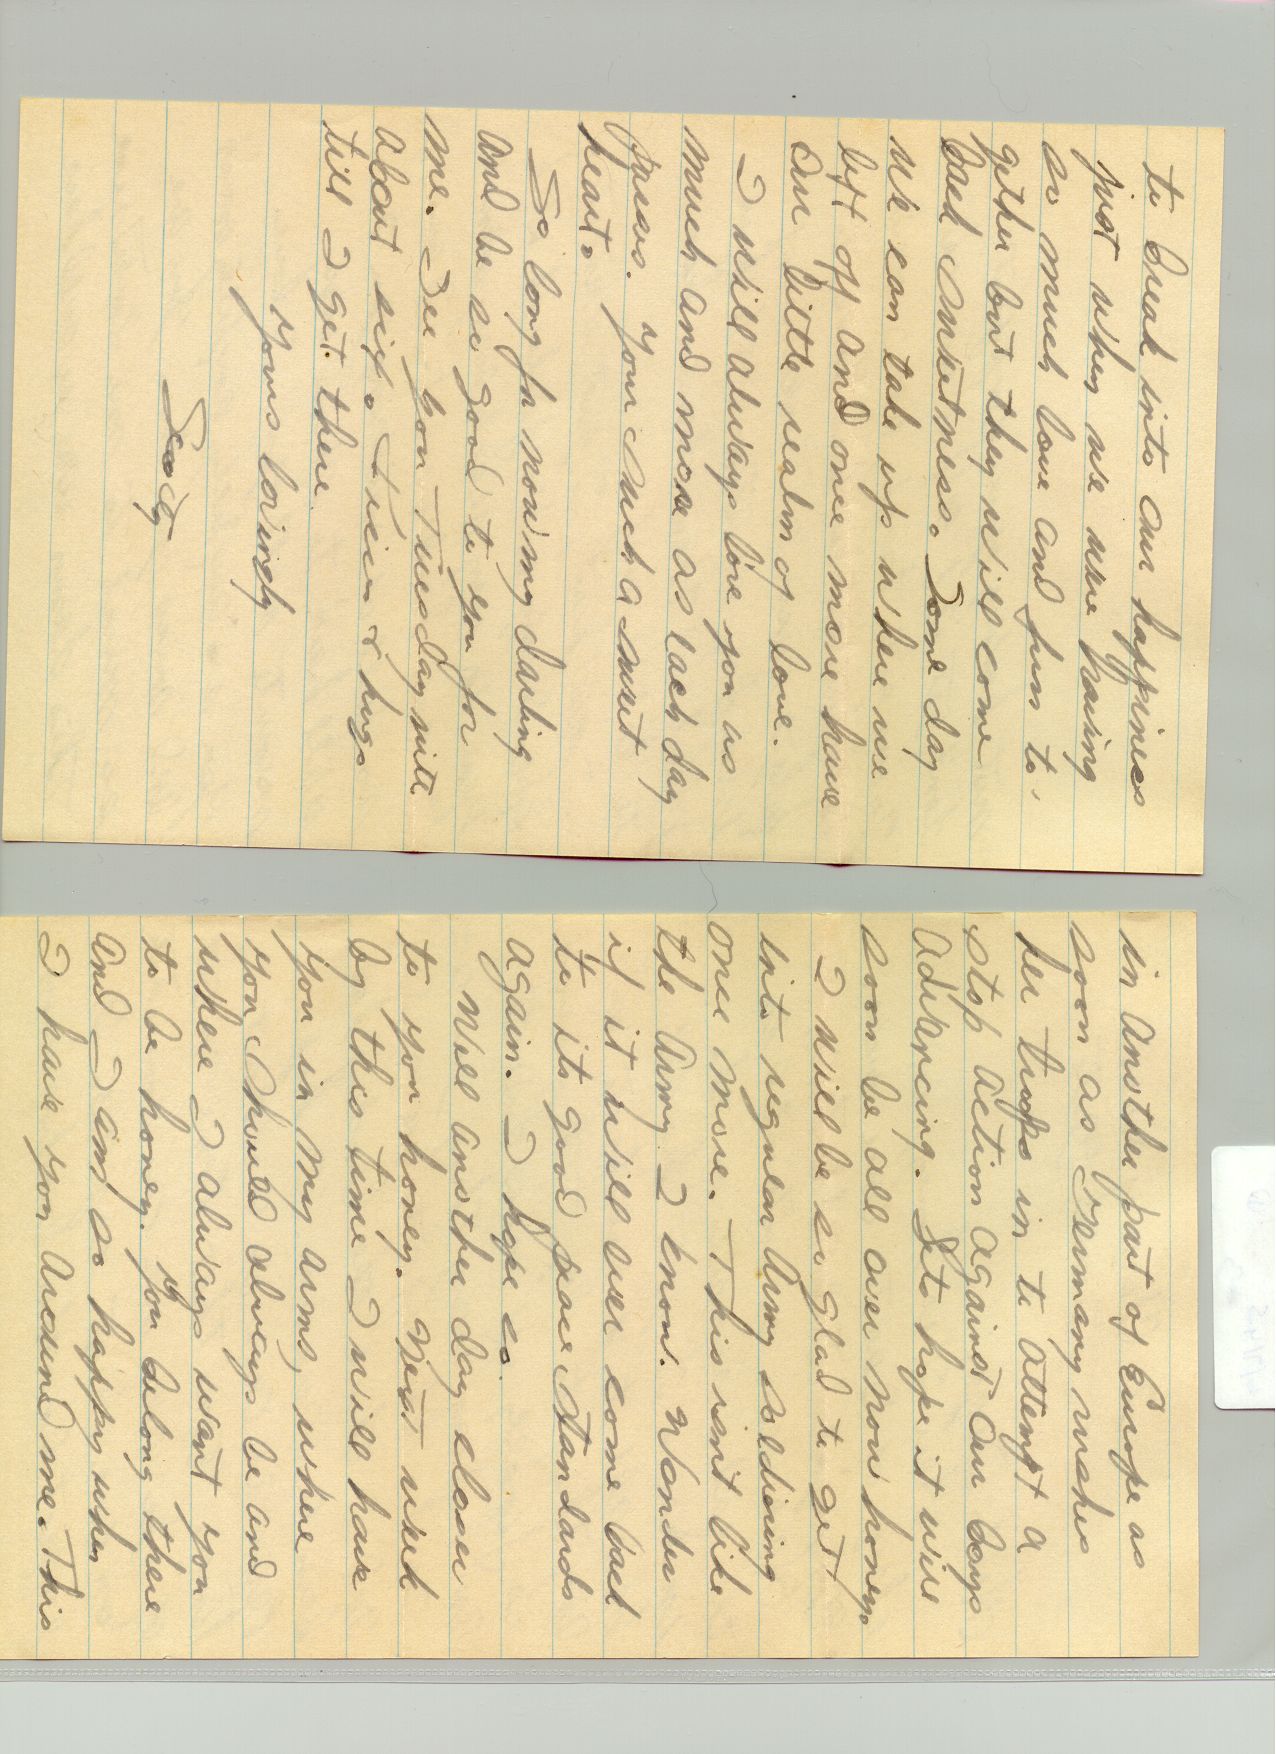 to break into our happiness
just when we were having
so much love and fun to-
gether but they will come
back sweetness. Some day
we can take up where we
left off and one more have
our little realm of love.
I will always love you as
much and more as each day
passes. your such a sweet
heart.
So long for now my darling
and be so good to you for
me. See you Tuesday nite
about six. & hugs
till I get there
yours lovingly
in another part of Europe as
soon as Germany rushes
her troops in to attempt a
stop action against our boys
advancing. Lets hope it will
soon be all over now honey.
I will be so glad to get
into regular Army soldiering
once more. This isnt like
the Army I know. Wonder
if it will ever come back
to its good peace standards
again. I hope so.
Well another day closer
to you honey. Next week
by this time I will have
you in my arms, where
you should always be and
where I always want you
to be honey. you belong there
and I am so happy when
I have you around me. This